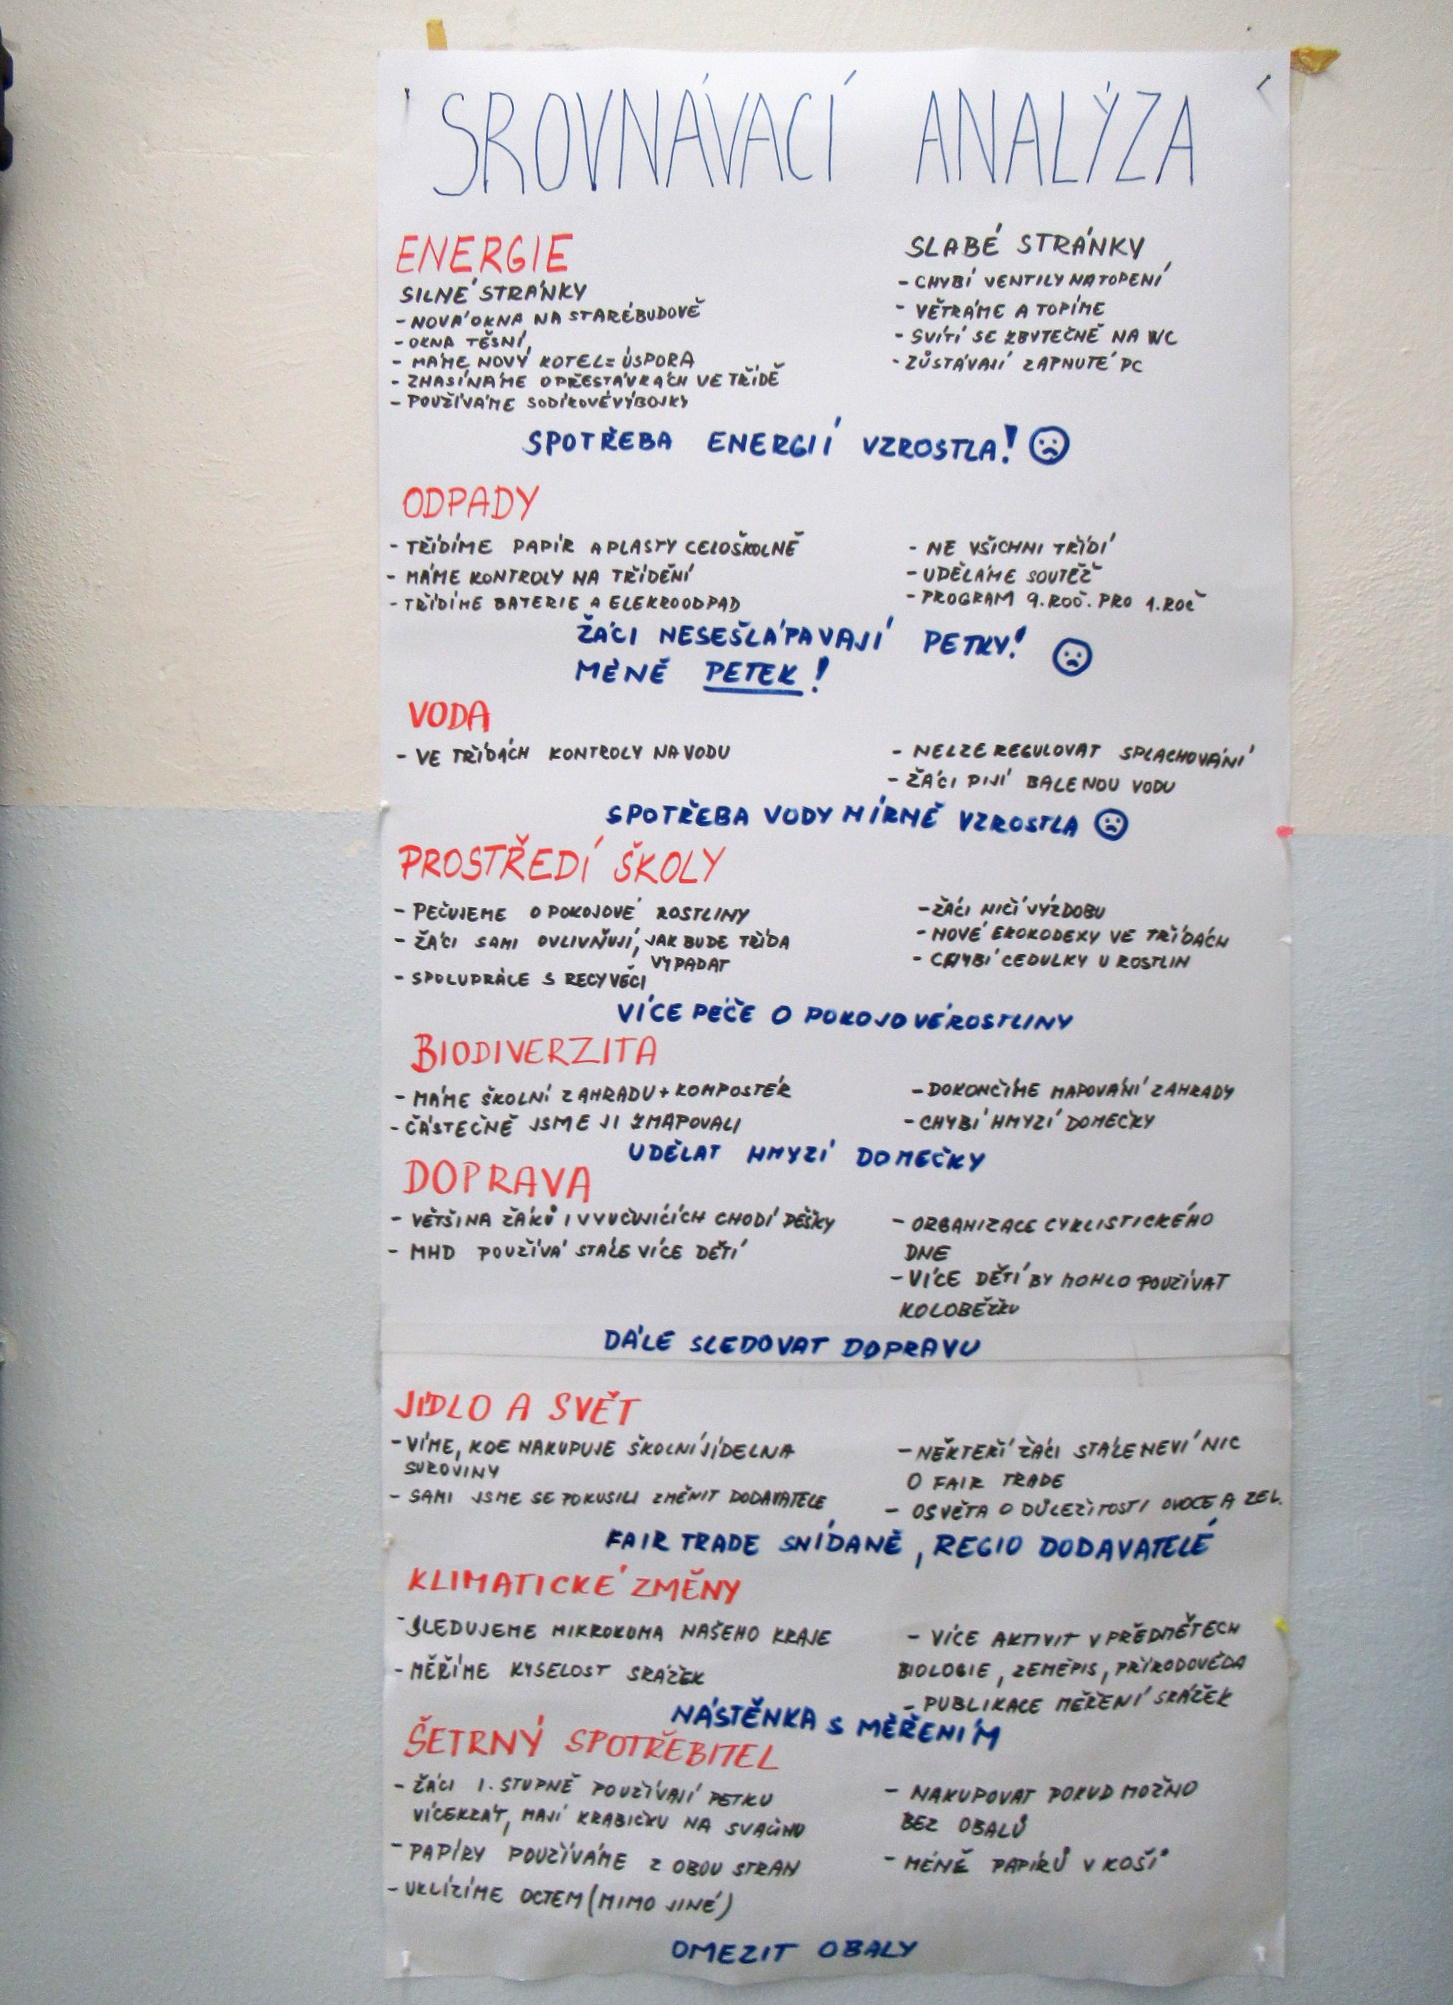 SROVNÁVACÍ ANALÝZA
ENERGIE
SILNÉ STRÁNKY
- NOVÁ OKNA NA STARÉ BUDOVĚ
- OKNA TĚSNÍ,
- MÁME NOVÝ KOTEL = ÚSPORA
- ZHASÍNÁME O PŘESTÁVKÁCH VE TŘÍDĚ
- POUŽÍVÁME SODÍKOVÉ VÝBOJKY
SLABÉ STRÁNKY
- CHYBÍ VENTILY NA TOPENÍ
- VĚTRÁME A TOPÍME
- SVÍTÍ SE ZBYTEČNĚ NA WC
- ZŮSTÁVAJÍ ZAPNUTÉ PC
SPOTŘEBA ENERGIÍ VZROSTLA!
ODPADY
- TŘÍDÍME PAPÍR A PLASTY CELOŠKOLNĚ
- MÁME KONTROLY NA TŘÍDĚNÍ
- TŘÍDÍME BATERIE A ELEKROODPAD
- NE VŠICHNI TŘÍDÍ
- UDĚLÁME SOUTĚŽ
- PROGRAM 9. ROČ. PRO 1. ROČ
ŽÁCI NESEŠLÁPAVAJÍ PETKY!
MÉNĚ PETEK!
VODA
- VE TŘÍDÁCH KONTROLY NA VODU
- NELZE REGULOVAT SPLACHOVÁNÍ
- ŽÁCI PIJÍ BALENOU VODU
SPOTŘEBA VODY MÍRNĚ VZROSTLA
PROSTŘEDÍ ŠKOLY
- PEČUJEME O POKOJOVÉ ROSTLINY
- ŽÁCI SAMI OVLIVŇUJÍ, JAK BUDE TŘÍDA
VYPADAT
- SPOLUPRÁCE S RECYVĚCI
- ŽÁCI NIČÍ VÝZDOBU
- NOVÉ EKOKODEXY VE TŘÍDÁCH
- CHYBÍ CEDULKY U ROSTLIN
VÍCE PÉČE O POKOJOVÉ ROSTLINY
BIODIVERZITA
- MÁME ŠKOLNÍ ZAHRADU + KOMPOSTÉR
- ČÁSTEČNĚ JSME JI ZMAPOVALI
- DOKONČÍME MAPOVÁNÍ ZAHRADY
- CHYBÍ HMYZÍ DOMEČKY
UDĚLAT HMYZÍ DOMEČKY
DOPRAVA
- VĚTŠINA ŽÁKŮ I VYUČUJÍCÍCH CHODÍ PĚŠKY
- MHD POUŽÍVÁ STÁLE VÍCE DĚTÍ
- ORGANIZACE CYKLISTICKÉHO
DNE
- VÍCE DĚTÍ BY MOHLO POUŽÍVAT
KOLOBĚŽKU
DÁLE SLEDOVAT DOPRAVU
JÍDLO A SVĚT
- VÍME, KDE NAKUPUJE ŠKOLNÍ JÍDELNA
SUROVINY
- SAMI JSME SE POKUSILI ZMĚNIT DODAVATELE
- NĚKTEŘÍ ŽÁCI STÁLE NEVÍ NIC
O FAIR TRADE
- OSVĚTA O DŮLEŽITOSTI OVOCE A ZEL.
FAIR TRADE SNÍDANĚ, REGIO DODAVATELÉ
KLIMATICKÉ ZMĚNY
- SLEDUJEME MIKROKLIMA NAŠEHO KRAJE
- MĚŘÍME KYSELOST SRÁŽEK
- VÍCE AKTIVIT V PŘEDMĚTECH
BIOLOGIE, ZEMĚPIS, PŘÍRODOVĚDA
- PUBLIKACE MĚŘENÍ SRÁŽEK
NÁSTĚNKA S MĚŘENÍM
ŠETRNÝ SPOTŘEBITEL
- ŽÁCI 1. STUPNĚ POUŽÍVAJÍ PETKU
VÍCEKRÁT, MAJÍ KRABIČKU NA SVAČINU
- PAPÍRY POUŽÍVÁME Z OBOU STRAN
- UKLÍZÍME OCTEM (MIMO JINÉ)
- NAKUPOVAT POKUD MOŽNO
BEZ OBALŮ
- MÉNĚ PAPÍRŮ V KOŠI
OMEZIT OBALY